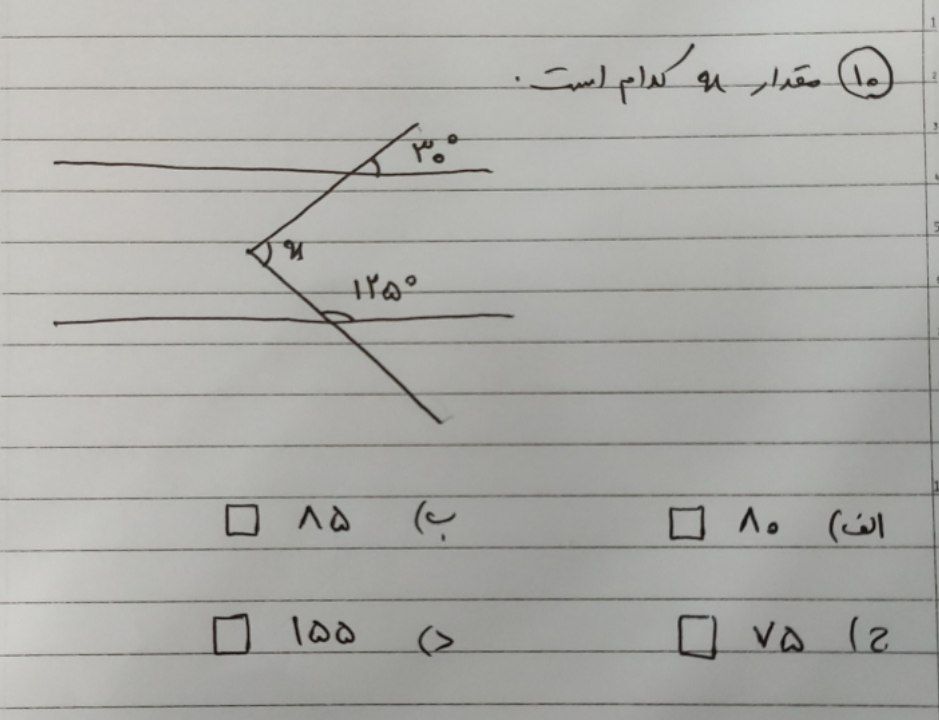 ۱۰ مقدار x کدام است.
۳۰°
x
۱۲۵°
الف) ۸۰ ب) ۸۵
ج) ۷۵ د) ۱۵۵